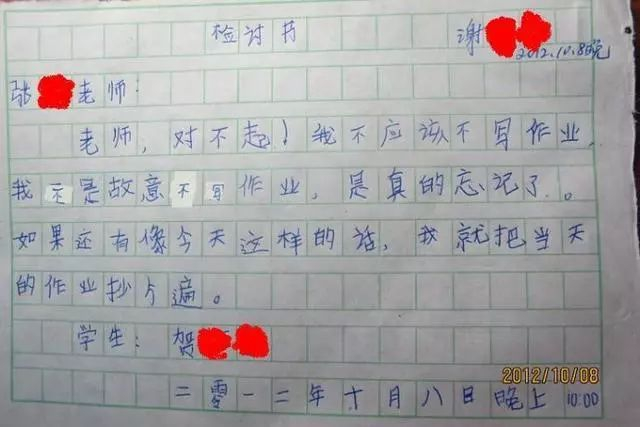 检讨书 谢
2012.10.8晚
张 老师:
老师,对不起!我不应该不写作业,
我不是故意不写作业,是真的忘记了。
如果还有像今天这样的话,我就把当天
的作业抄 遍。
学生: 贺
二零一二年十月八日晚上10:00
2012/10/08